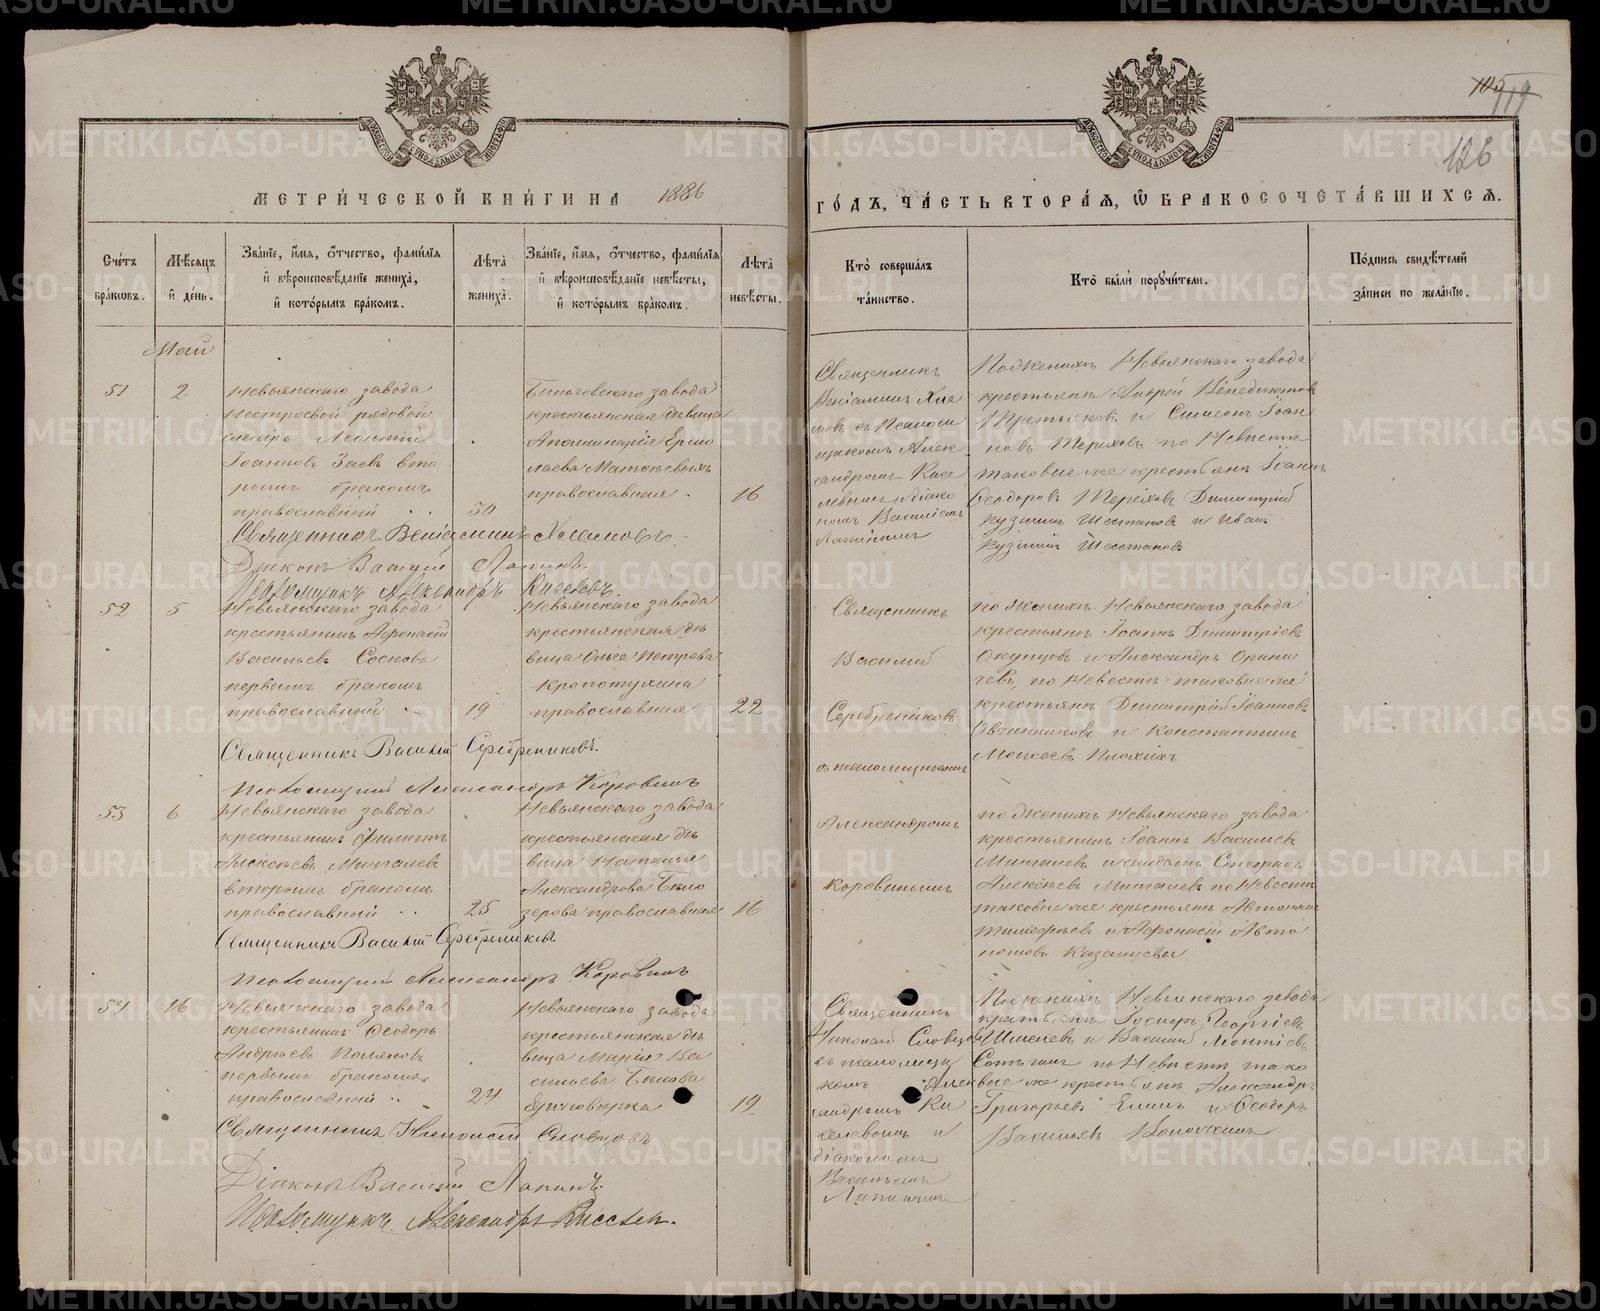 МЕТРИ́ЧЕСКОЙ КНИ́ГИ НА 1886
ГО́ДЪ, ЧА́СТЬ ВТОРА́Я, Ѡ БРАКОСОЧЕТА́ВШИХСЯ.
105
119
126
Сче́тъ бра́ковъ.
Мѣ́сяцъ и де́нь.
Зва́нїе, и́мя, о́тчество, фами́лїя и вѣроисповѣ́данїе жениха̀, и кото́рымъ бра́комъ.
Лѣ́та жениха̀.
Зва́нїе, и́мя, о́тчество, фами́лїя и вѣроисповѣ́данїе невѣ́сты, и кото́рымъ бра́комъ.
Лѣ́та невѣ́сты.
Кто̀ соверша́лъ та́инство.
Кто̀ бы́ли поручи́тели.
По́дпись свидѣ́телей за́писи по жела́нїю.
Май
51
2
Невьянскаго завода
нестроевой рядовой
слесарь Леонтій
Іоанновъ Заевъ вто
рымъ бракомъ
православный
30
Быньговскаго завода
крестьянская дѣвица
Аполлинарія Ермо
лаева
православная
16
Священникъ
Веніаминъ Хла
новъ съ псаломщ
щикомъ Алек
сандромъ Кисе
левымъ и діако
номъ Василіемъ
Лапинымъ
По женихѣ Невьянскаго завода
крестьяне Андрей Венедиктов
Третьяковъ и Симеонъ Іоан
новъ Тереховъ по невѣстѣ
таковые же крестьяне Іоаннъ
Ѳеодоровъ Тереховъ Димитрій
Кузминъ Шестаковъ и Иванъ
Кузминъ Шестаковъ
Священникъ Веніаминъ
Діаконъ Василій Лапинъ.
Псаломщикъ Александръ Киселевъ.
52
5
Невьянскаго завода
крестьянинъ Аѳонасій
Васильевъ Сосковъ
первымъ бракомъ
православный
19
Невьянскаго завода
крестьянская дѣ
вица Ольга Петрова
Кропотухина
православная
22
Священникъ
Василій
Серебрениковъ
съ псаломщикомъ
Александромъ
Коровинымъ
по женихѣ Невьянскаго завода
крестьяне Іоаннъ Димитріевъ
Окунцовъ и Александръ
по невѣстѣ таковые же
крестьяне Димитрій Іоанновъ
Овчинниковъ и Константинъ
Моисеевъ Плохихъ
Священникъ Василій Серебрениковъ.
Псаломщикъ Александръ Коровинъ
53
6
Невьянскаго завода
крестьянинъ Филиппъ
Алексѣевъ Матвѣевъ
вторымъ бракомъ
православный
25
Невьянскаго завода
крестьянская дѣ
вица Наталья
Александрова Бѣло
зерова православная
16
по женихѣ Невьянскаго завода
крестьянинъ Іоаннъ Васильевъ
и солдатъ Стефанъ
Алексѣевъ по невѣстѣ
таковые же крестьяне Автономъ
Тимофѣевъ и Аѳонасій Авто
номовъ Казанцевы
Священникъ Василій Серебрениковъ
Псаломщикъ Александръ Коровинъ
54
16
Невьянскаго завода
крестьянинъ Ѳеодоръ
Андреевъ Поляковъ
первымъ бракомъ
православный
24
Невьянскаго завода
крестьянская дѣ
вица Марія Ва
сильева Бѣлова
единовѣрка
19
Священникъ
Николай Словцовъ
съ псаломщи
комъ Алек
сандромъ Ки
селевымъ и
діакономъ
Васильемъ
Лапинымъ
По женихѣ Невьянскаго завода
крестьяне Георгіевъ
Шмелевъ и Василій Леонтіевъ
по невѣстѣ тако
вые же крестьяне Александръ
Григорьевъ и Ѳеодоръ
Васильевъ
Священникъ Николай Словцовъ
Діаконъ Василій Лапинъ.
Псаломщикъ Александръ Киселевъ.
METRIKI.GASO-URAL.RU